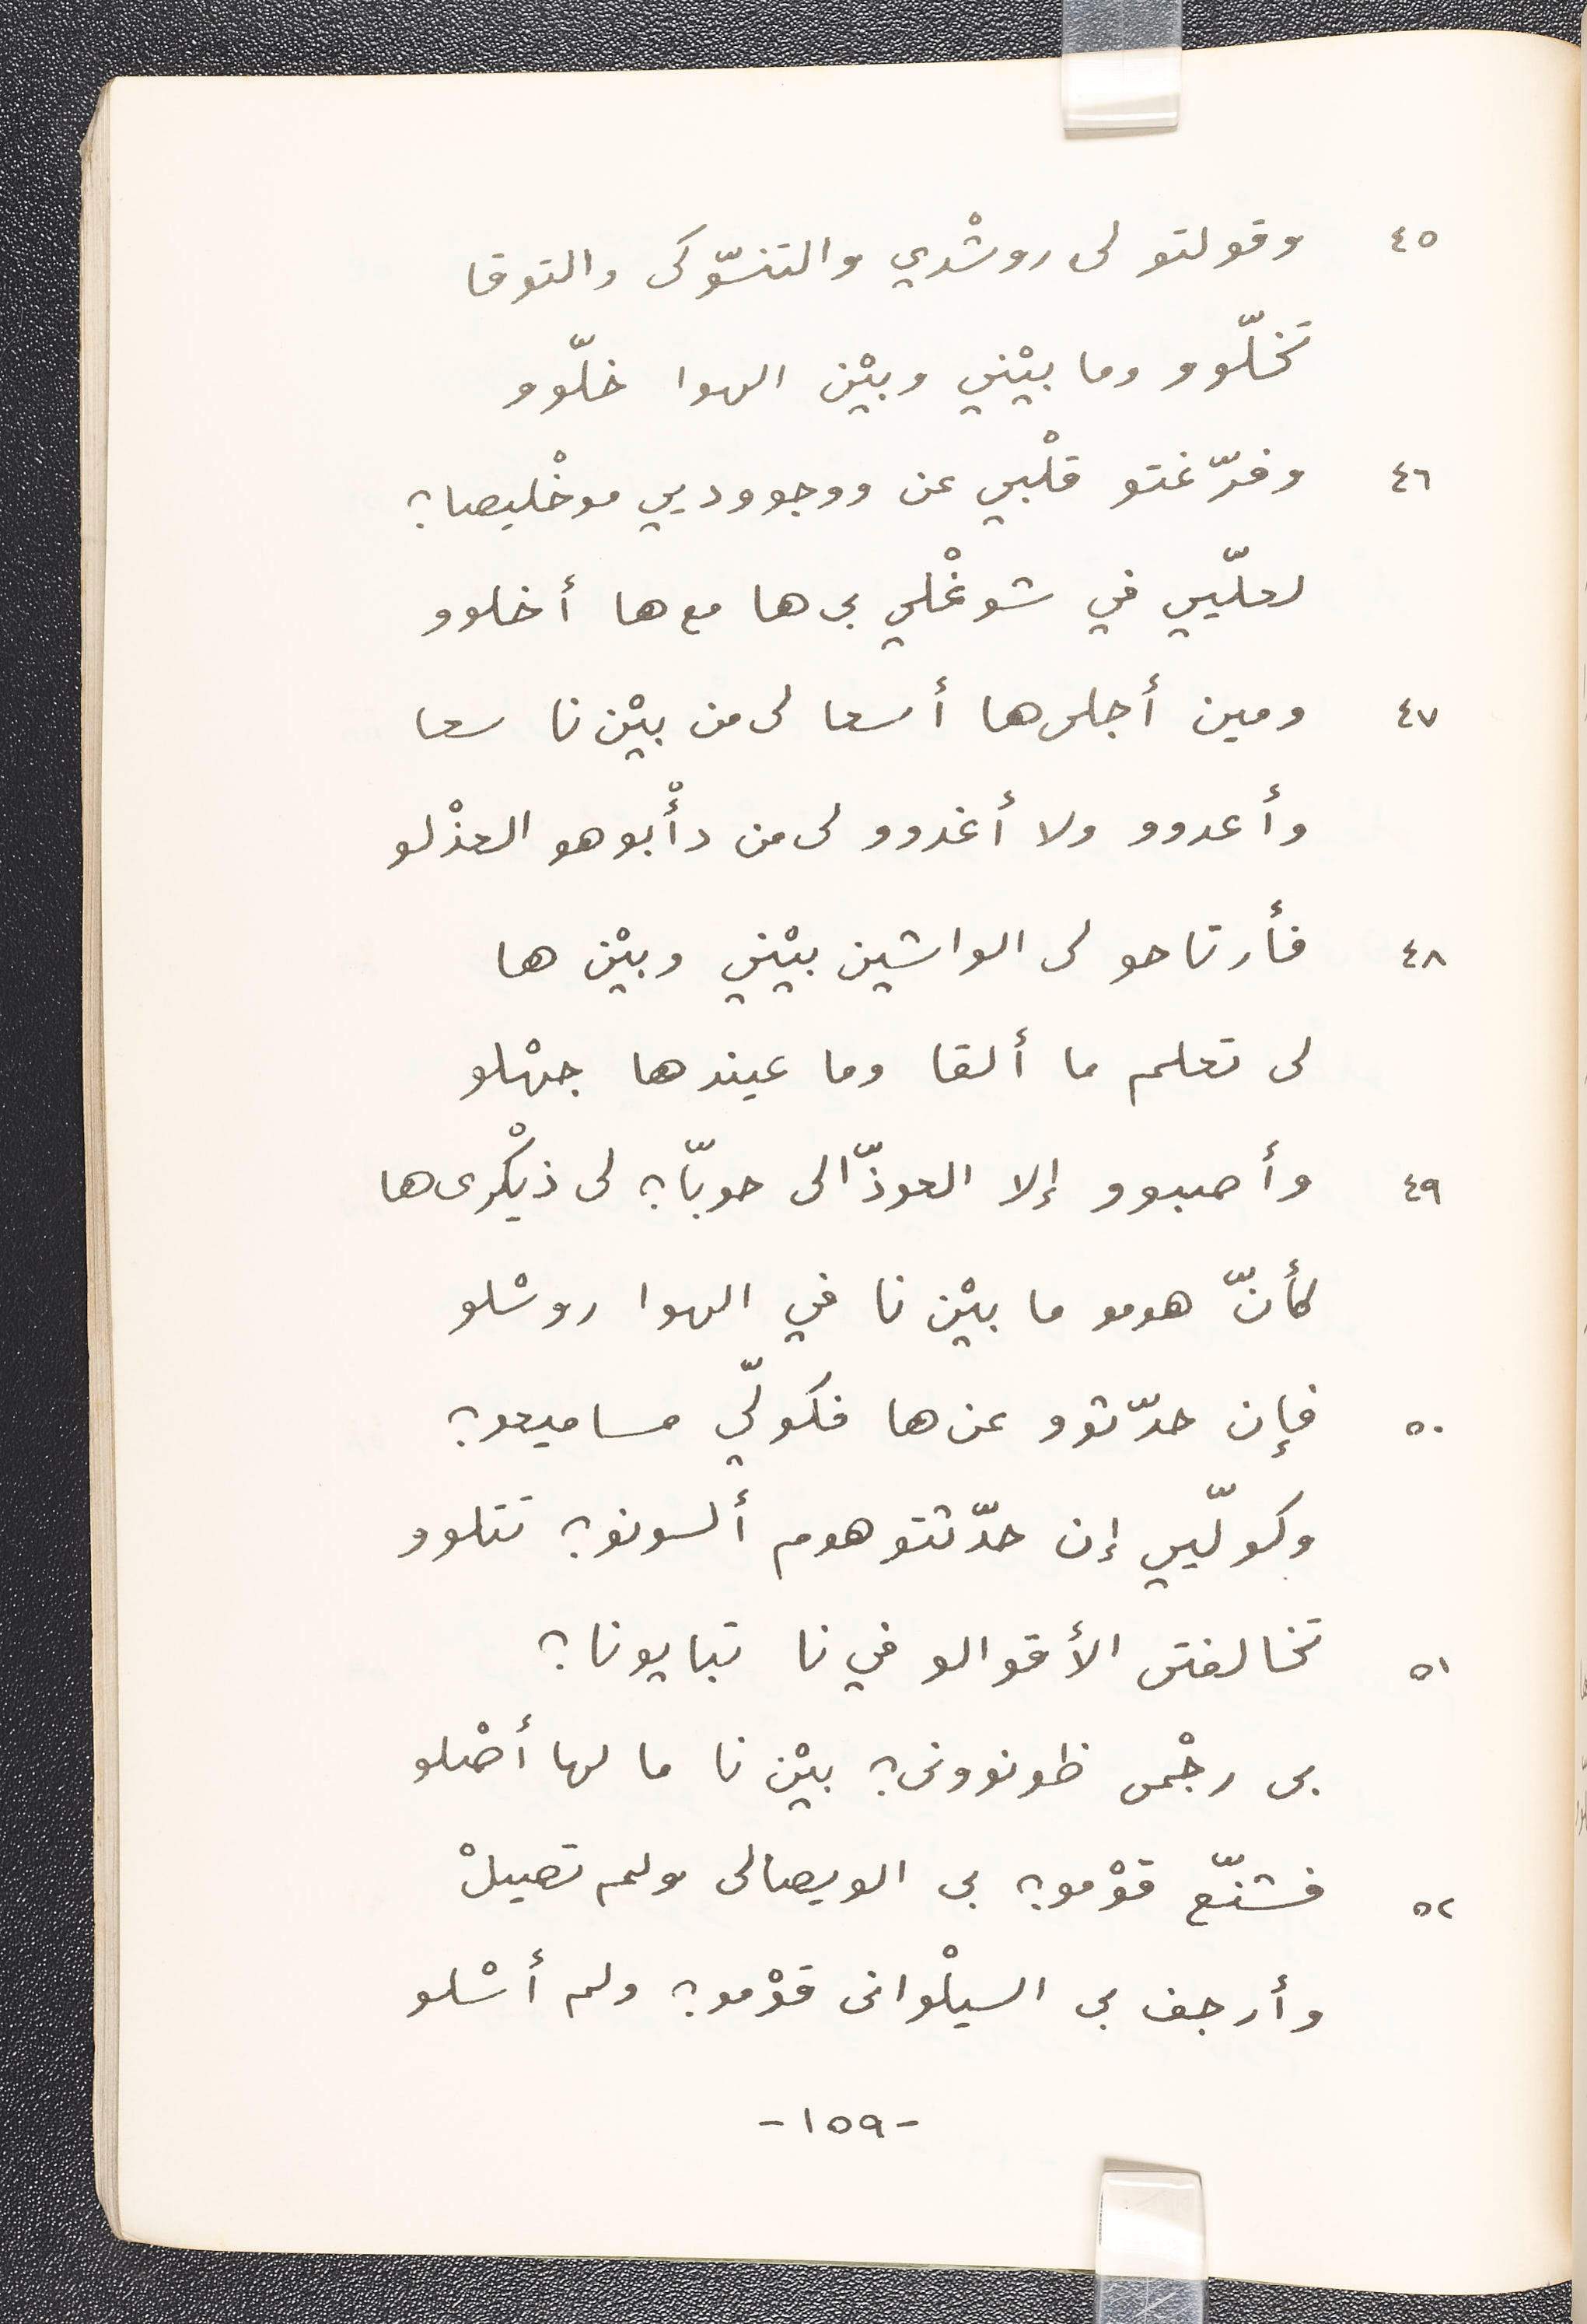 ٤٥ وقولتو لى روشْدي والتنسّوكى والتوقا
تخلّوو وما بيْني وبيْن الهوا خلّوو
٤٦ وفرّغتو قلْبي عن ووجووديي موخْليصا؟
لعلّيي في شوغْلي بى ها مع ها أخلوو
٤٧ ومين أجلى ها أسعا لى من بيْن نا سعا
وأعدوو ولا أغدوو لى من دأْبو هو العذْلو
٤٨ فأرتاحو لى الواشين بيْني وبيْن ها
لى تعلم ما ألقا وما عيندها جهْلو
٤٩ وأصبوو إلا العوذّالى حوبّا؟ لى ذيكْرى ها
كأنّ هومو ما بيْن نا في الهوا روسْلو
٥٠ فإن حدّثوو عن ها فكولّي مساميعو؟
وكولّيي إن حدّثتو هوم ألسونو؟ تتلوو
٥١ تخالفتى الأقوالو في نا تبايونا؟
بى رجْمى ظونوونى؟ بيْن نا ما لها أصْلو
٥٢ فشنّع قوْمو؟ بى الويصالى ولم تصيلْ
وأرجف بى السيلْوانى قوْمو؟ ولم أسْلو
-١٥٩-